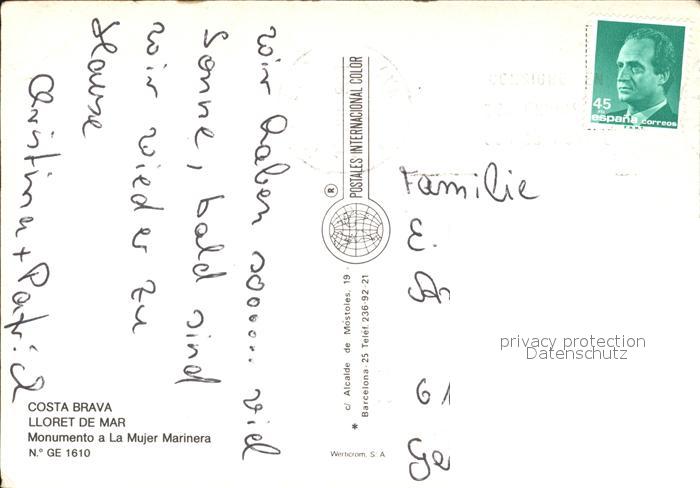 wir haben soooooo.. viel
Sonne, bald sind
wir wieder zu
Hause
Christina + Patrick
COSTA BRAVA
LLORET DE MAR
Monumento a La Mujer Marinera
N.º GE 1610
POSTALES INTERNACIONAL COLOR
®
c/ Alcalde de Móstoles, 19
Barcelona-25 Teléf. 236-92-21
*
Werticrom, S. A.
45
españa correos
Familie
E.
privacy protection
Datenschutz